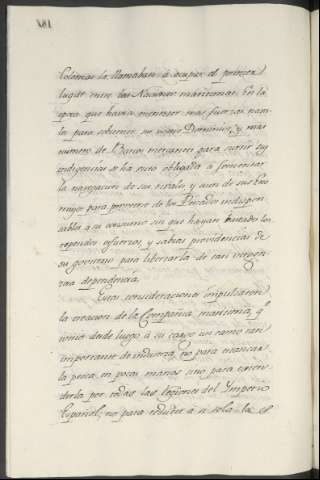 Colonias la llamaban à ocupar el primer
lugar entre las Naciones maritimas. En la
epoca que havia menester mas fuerzas nava
les para sostener su vasto Dominio, y mas
numero de Buques mercantes para surtir sus
indigencias se ha visto obligada à fomentar
la navegacion de sus rivales y aun de sus Ene
migos para proveerse de los Pescados indispen
sables a su consumo sin que hayan bastado los
repetidos esfuerzos, y sabias providencias de
su govierno para libertarla de tan vergon
zosa dependencia.
Estas consideraciones impulsaron
la creacion de la Compañia maritima, qe
tomó desde luego à su cargo un ramo tan
importante de industria, no para estancar
la pesca en pocas manos sino para exten
derla por todas las regiones del Ymperio
Español; no para reducir à si sola la el